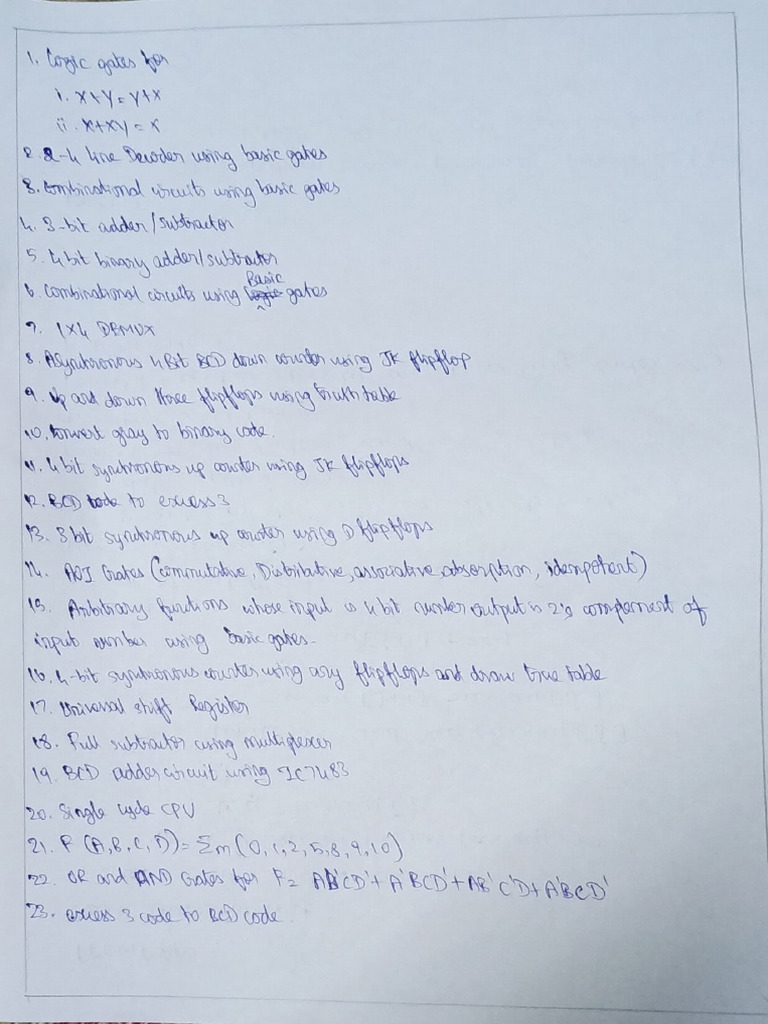 1. Logic gates for
i. x+y = y+x
ii. x+xy = x
2. 2-4 line Decoder using basic gates
3. Combinational circuits using basic gates
4. 3-bit adder/subtractor
5. 4 bit binary adder/subtractor
6. Combinational circuits using Basic gates
7. 1x4 DEMUX
8. ASynchronous 4 Bit BCD down counter using JK flipflop
9. Up and down three flipflops using truth table
10. Convert gray to binary code.
11. 4 bit synchronous up counter using JK flipflops
12. BCD code to excess 3
13. 3 bit synchronous up counter using D flipflops
14. AOI Gates (Commutative, Distributive, associative, absorption, idempotent)
15. Arbitrary functions whose input is 4 bit number output is 2's complement of
input number using basic gates.
16. 4-bit synchronous counter using any flipflops and draw true table
17. Universal shift Register
18. Full subtractor using multiplexer
19. BCD adder circuit using IC7483
20. Single cycle CPU
21. F (A,B,C,D) = Σm (0,1,2,5,8,9,10)
22. OR and AND Gates for F= AB'CD'+A'BCD'+AB'C'D+A'BCD'
23. excess 3 code to BCD code